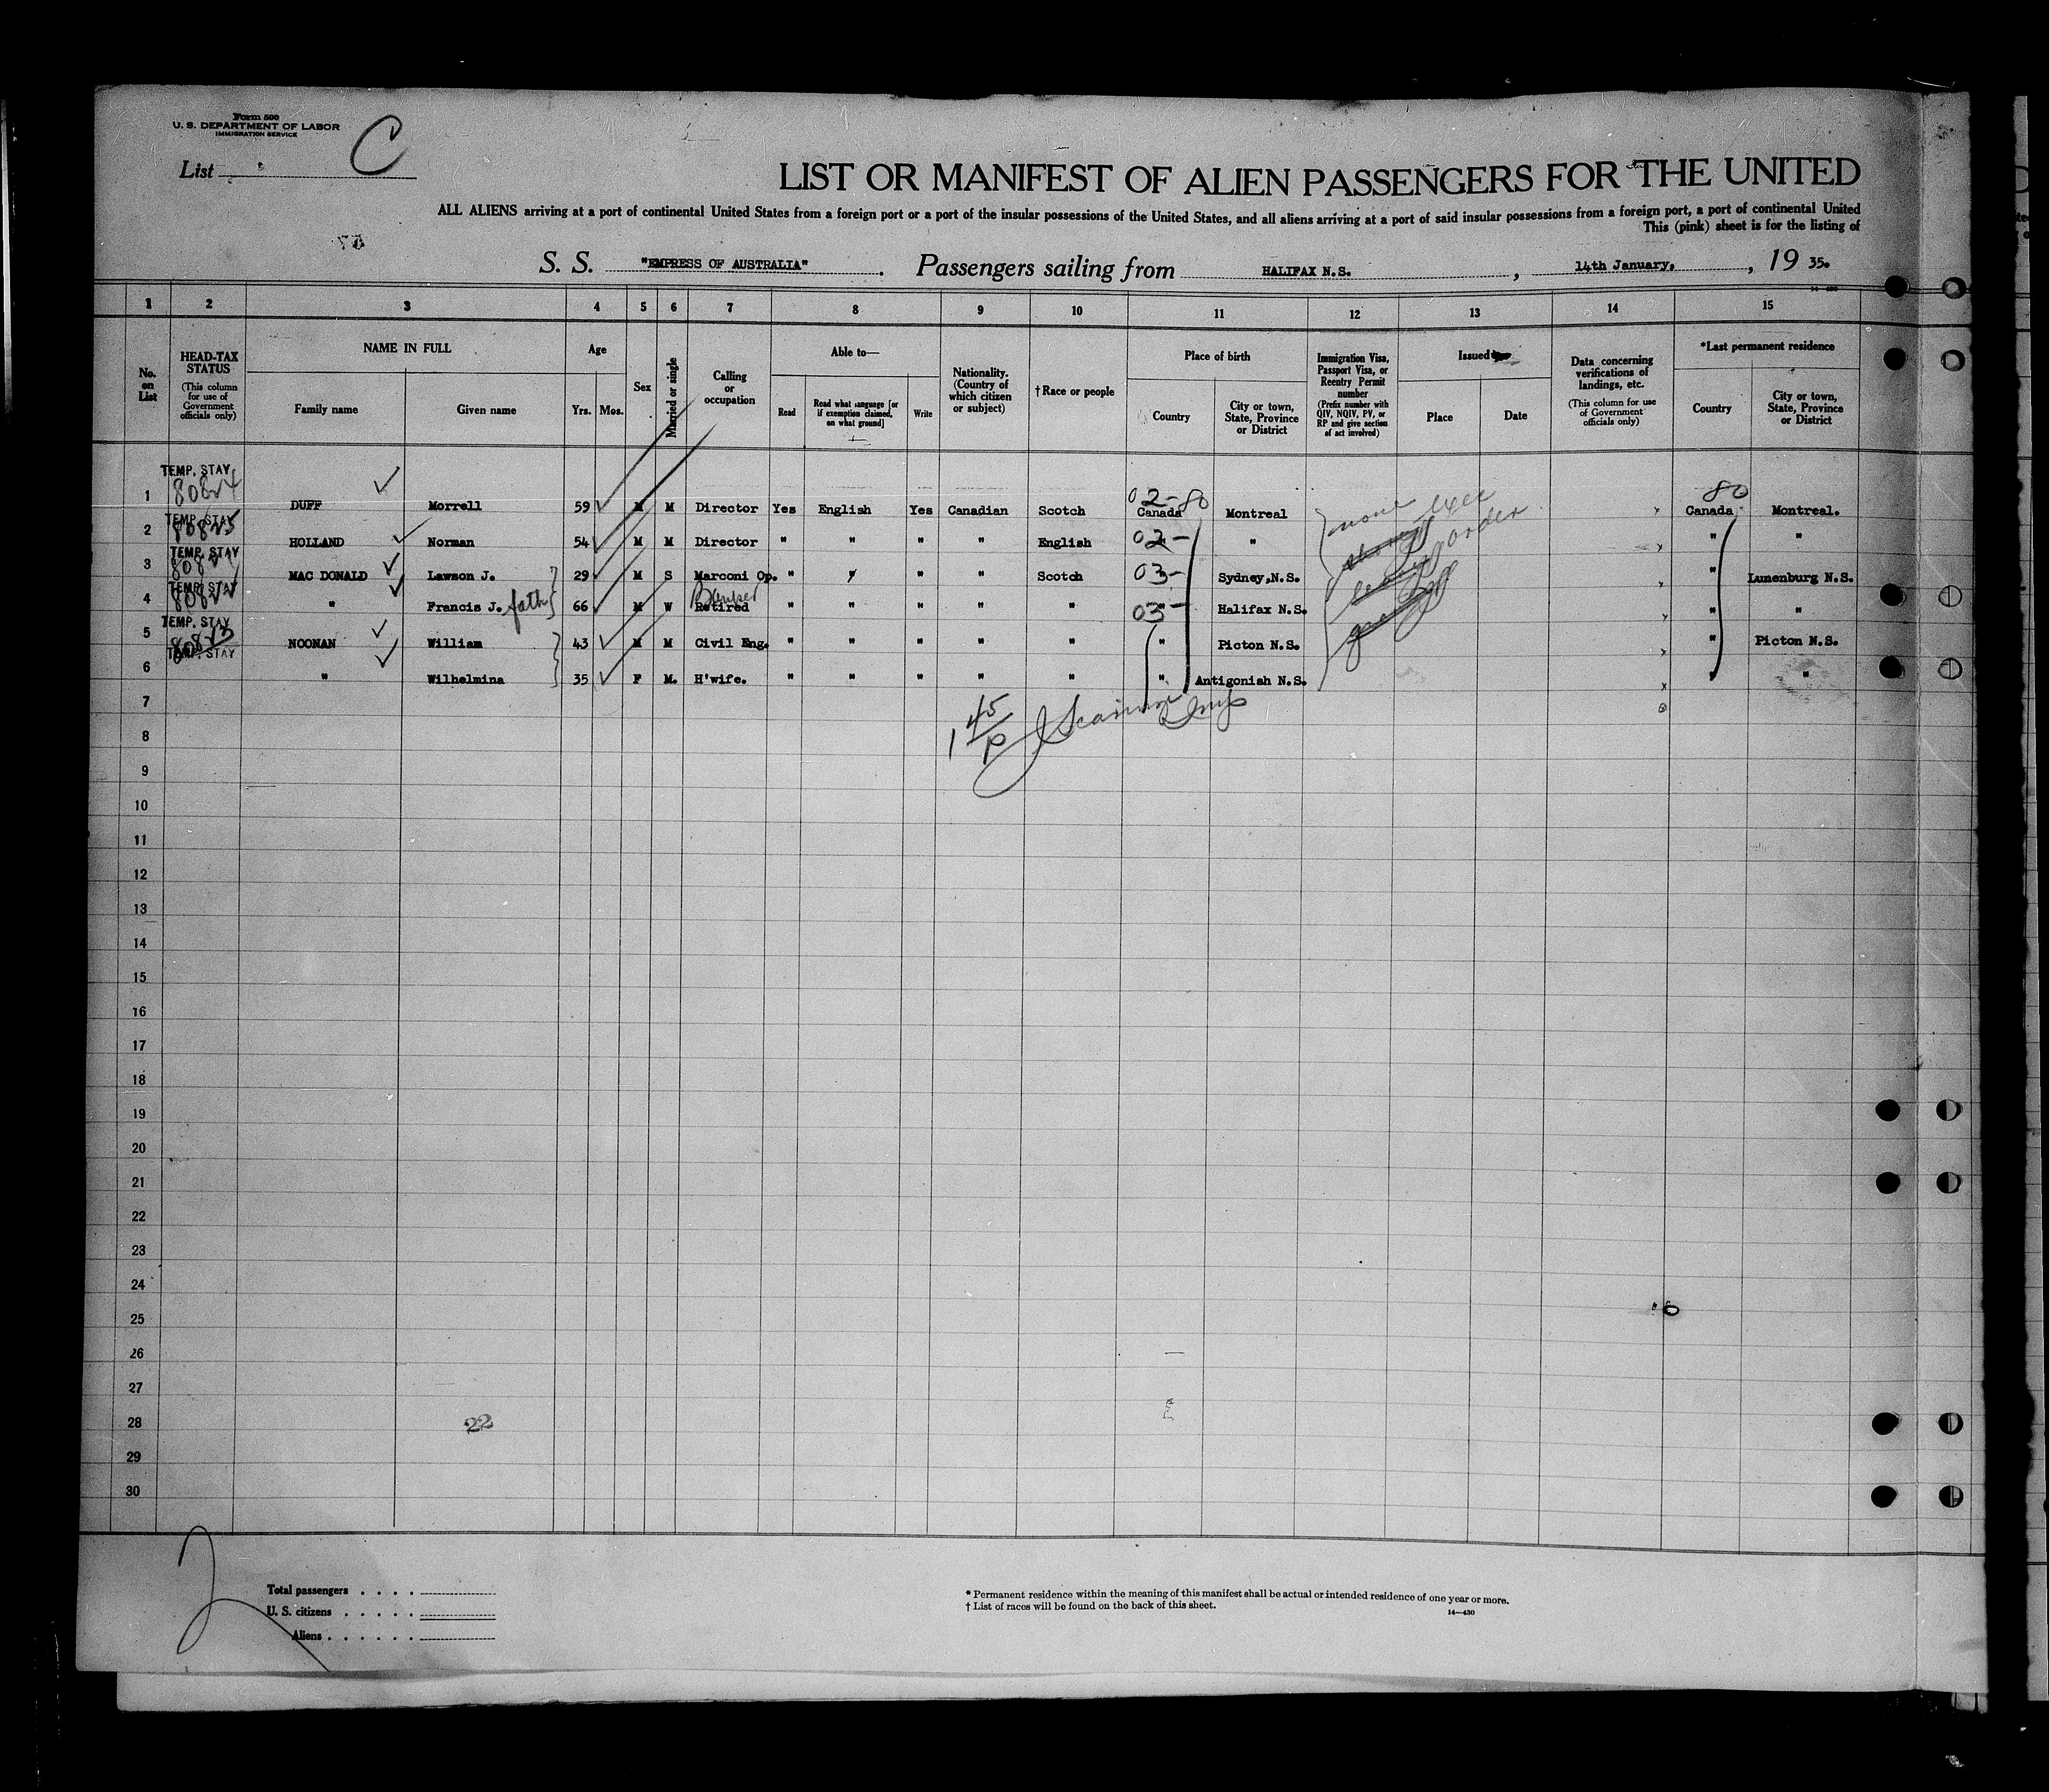 Form 500
U. S. DEPARTMENT OF LABOR
IMMIGRATION SERVICE
List C
LIST OR MANIFEST OF ALIEN PASSENGERS FOR THE UNITED
ALL ALIENS arriving at a port of continental United States from a foreign port or a port of the insular possessions of the United States, and all aliens arriving at a port of said insular possessions from a foreign port, a port of continental United
This (pink) sheet is for the listing of
S. S. "EMPRESS OF AUSTRALIA". Passengers sailing from HALIFAX N.S., 14th January, , 19 35.
1 2 3 4 5 6 7 8 9 10 11 12 13 14 15
No. on List
HEAD-TAX STATUS
(This column for use of Government officials only)
NAME IN FULL
Family name
Given name
Age
Yrs. Mos.
Sex
Married or single
Calling or occupation
Able to—
Read
Read what language [or if exemption claimed, on what ground]
Write
Nationality. (Country of which citizen or subject)
† Race or people
Place of birth
Country
City or town, State, Province or District
Immigration Visa, Passport Visa, or Reentry Permit number
(Prefix number with QIV, NQIV, PV, or RP and give section of act involved)
Issued
Place
Date
Data concerning verifications of landings, etc.
(This column for use of Government officials only)
*Last permanent residence
Country
City or town, State, Province or District
TEMP. STAY
80824
1 DUFF Morrell 59 M M Director Yes English Yes Canadian Scotch 02-80 Canada Montreal none exec 80 Canada Montreal.
TEMP. STAY
80825
2 HOLLAND Norman 54 M M Director " " " " English 02- " " order " "
TEMP. STAY
3 MAC DONALD Lawson J. 29 M S Marconi Op. " " " " Scotch 03- Sydney, N.S. " Lunenburg N.S.
TEMP. STAY
4 " Francis J. fath 66 M W Banker Retired " " " " " 03- " Halifax N.S. " "
TEMP. STAY
80823
5 NOONAN William 43 M M Civil Eng. " " " " " " Picton N.S. " Picton N.S.
TEMP. STAY
6 " Wilhelmina 35 F M. H'wife. " " " " " " Antigonish N.S. "
7
8
9
10
11
12
13
14
15
16
17
18
19
20
21
22
23
24
25
26
27
28 22
29
30
Total passengers . . . .
U. S. citizens . . . . .
Aliens . . . . . .
* Permanent residence within the meaning of this manifest shall be actual or intended residence of one year or more.
† List of races will be found on the back of this sheet.
14—430